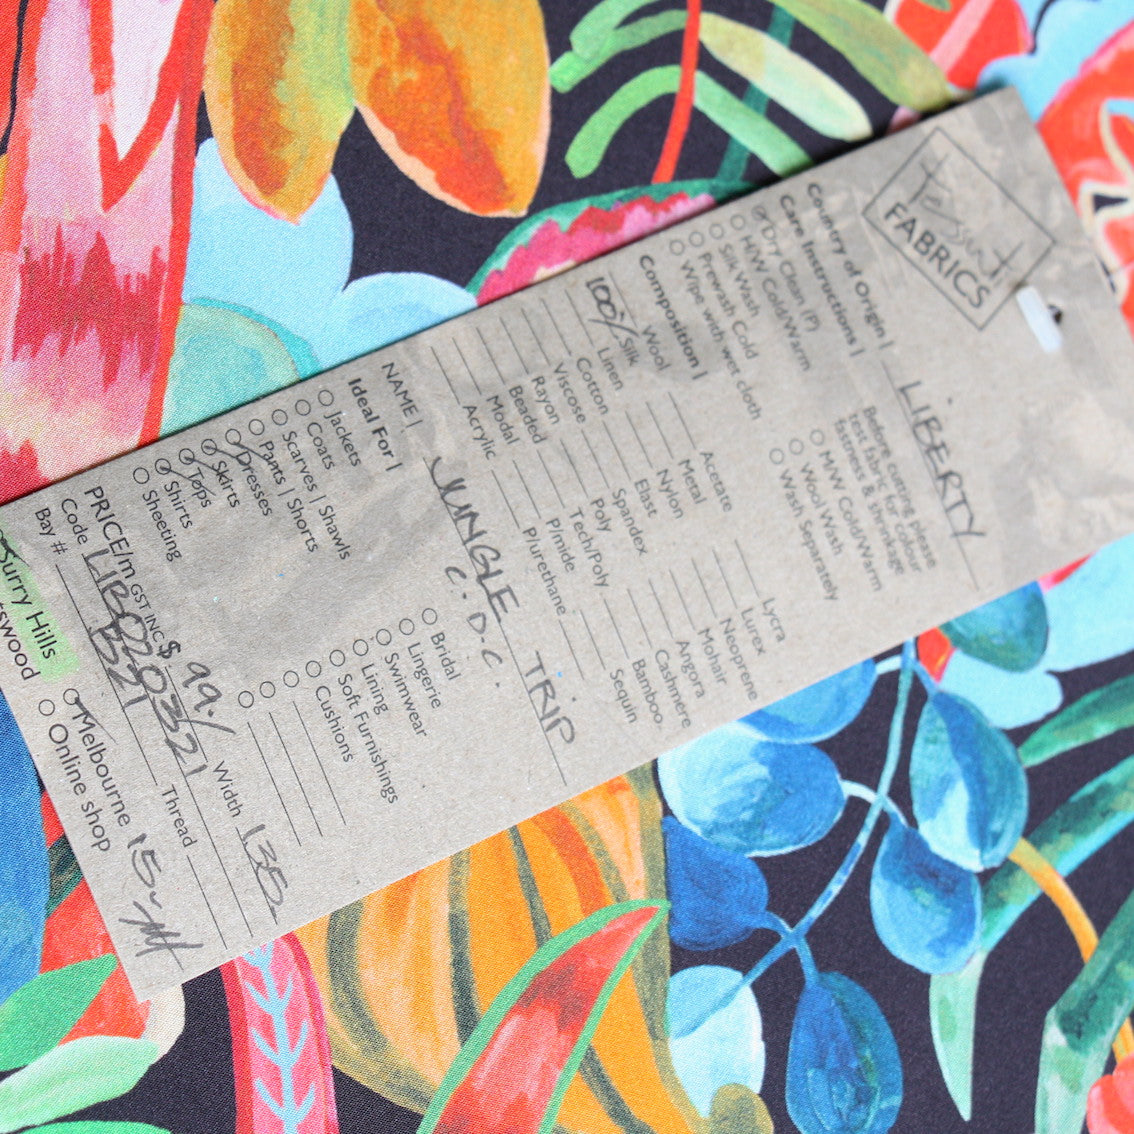 Tessuti
FABRICS
Country of Origin | LIBERTY
Care Instructions |
Dry Clean (P)
H/W Cold/Warm
Silk Wash
Prewash Cold
Wipe with wet cloth
Before cutting please
test fabric for colour
fastness & shrinkage
M/W Cold/Warm
Wool Wash
Wash Separately
Composition |
Wool
100% Silk
Linen
Cotton
Viscose
Rayon
Beaded
Modal
Acrylic
Acetate
Metal
Nylon
Elast
Spandex
Poly
Tech/Poly
P/mide
P/urethane
Lycra
Lurex
Neoprene
Mohair
Angora
Cashmere
Bamboo
Sequin
NAME | JUNGLE TRIP
C.D.C.
Ideal For |
Jackets
Coats
Scarves | Shawls
Pants | Shorts
Dresses
Skirts
Tops
Shirts
Sheeting
Bridal
Lingerie
Swimwear
Lining
Soft Furnishings
Cushions
PRICE/m GST INC $ 99./ Width 135
Code LIB020321 Thread
Bay # B21
Surry Hills
Melbourne 15
Online shop